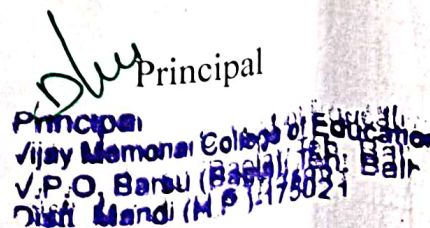 Principal
Principal
Vijay Memorial College of Education
V.P.O. Barsu (      ) Teh. Balh
Distt. Mandi (H.P.)-175021